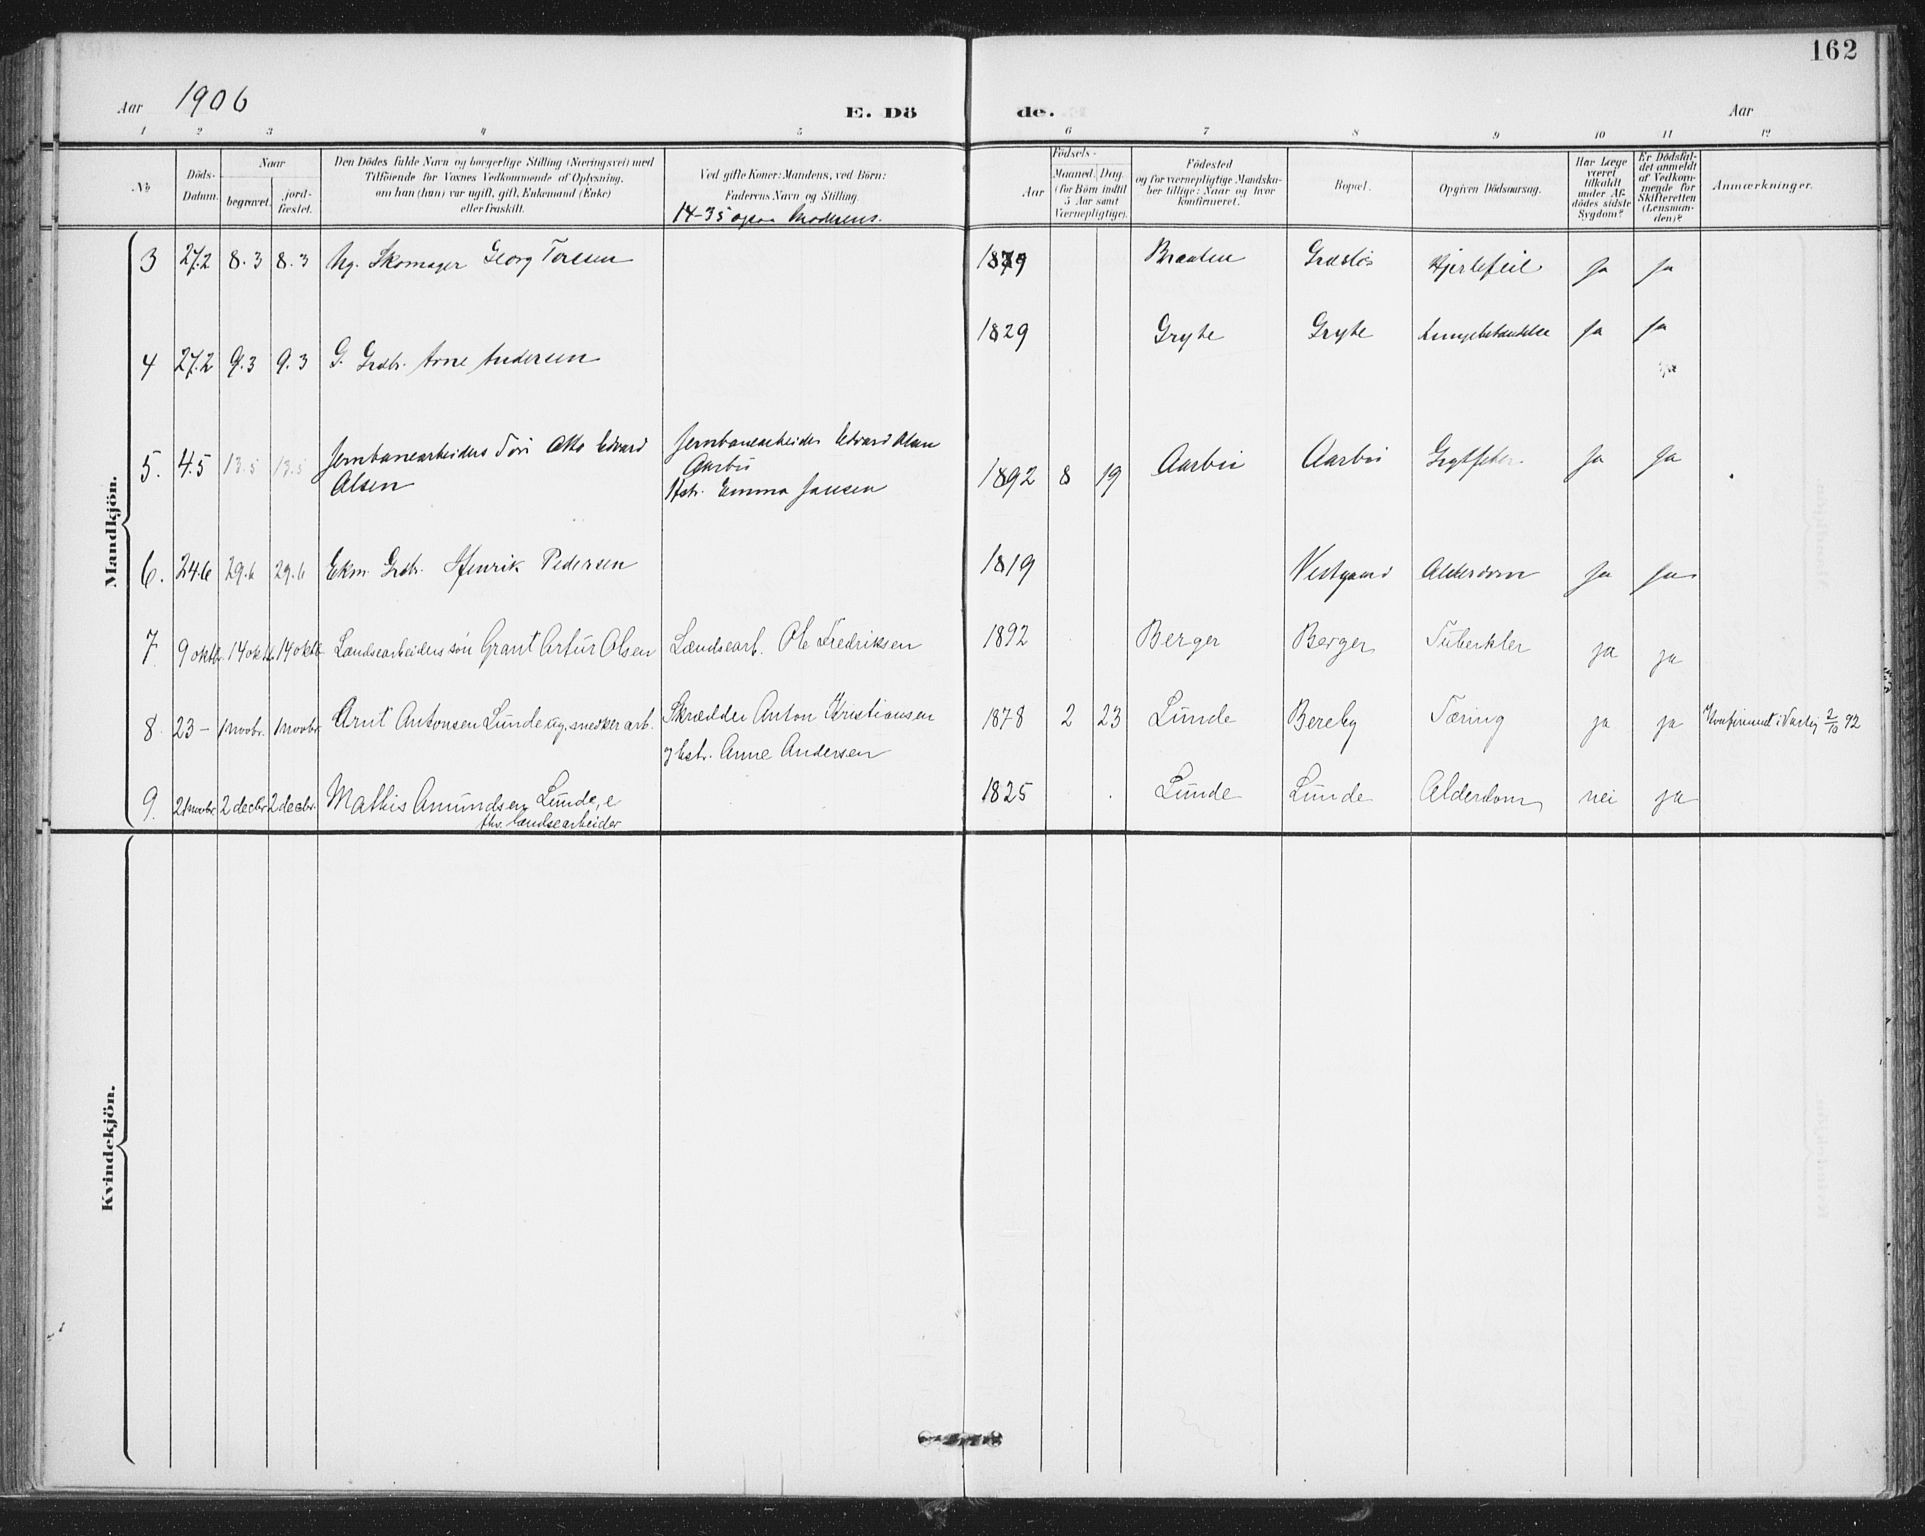 162
Aar 1906
E. Dö de.
Aar
1 2 3 4 5 6 7 8 9 10 11 12
No
Döds-Datum.
Naar
begravet.
jord-fæstet.
Den Dödes fulde Navn og borgerlige Stilling (Næringsvei) med
Tilföiende for Voxnes Vedkommende af Oplysning,
om han (hun) var ugift, gift, Enkemand (Enke)
eller fraskilt.
Ved gifte Koner: Mandens, ved Börn:
Faderens Navn og Stilling.
14-35 ogsaa Moderens.
Födsels-
Aar
Maaned. Dag.
(for Börn indtil
5 Aar samt
Værnepligtige).
Födested
og for værnepligtige Mandska-
ber tillige: Naar og hvor
konfirmeret.
Bopæl.
Opgiven Dödsaarsag.
Har Læge
været
tilkaldt
under Af-
dödes sidste
Sygdom?
Er Dödsfal-
det anmeldt
af Vedkom-
mende for
Skifteretten
(Lensman-
den)?
Anmærkninger.
Mandkjön.
3 27.2 8.3 8.3 Ug. Skomager Georg Toresen 1879 Braaten Græsløs Hjertefeil Ja Ja
4 27.2 9.3 9.3 G. Grdbr. Arne Andersen 1829 Gryte Gryte Lungebetændelse Ja Ja
5. 4.5 13.5 13.5 Jernbanearbeiders Søn Otto Edvard
Olsen
Jernbanearbeider Edvard Olsen
Aarbu
Hstr. Emma Jansen
1892 8 19 Aarbu Aarbu Ja Ja
6. 24.6 29.6 29.6 Ekm. Grdbr. Henrik Pedersen 1819 Vestgaard Alderdom Ja Ja
7 9 oktbr. 14 oktbr. 14 oktbr. Lændsearbeiders søn Grant Artur Olsen Lændsearb. Ole Fredriksen 1892 Berger Berger Tuberkler ja ja
8. 23 - 1 novbr. 1 novbr. Arnt Antonsen Lunde ug. snedkerarb. Skrædder Anton Kristiansen 1878 2 23 Lunde Bereby Tæring ja ja Konfirmert i Varteig 2/10 92
g hstr. Anne Andersen
9. 21 novbr. 2 decbr. 2 decbr. Mathis Amundsen Lunde, e
fhv. lændsearbeider
1825 Lunde Lunde Alderdom nei ja
Kvindekjön.